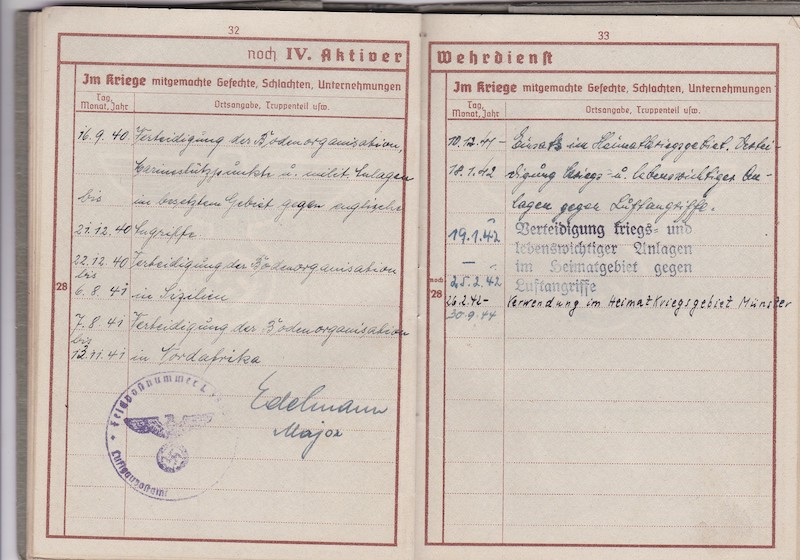 32
noch IV. Aktiver
Im Kriege mitgemachte Gefechte, Schlachten, Unternehmungen
Tag, Monat, Jahr
Ortsangabe, Truppenteil usw.
16.9.40 Verteidigung der Bodenorganisation,
Marinestützpunkte u. milit. Anlagen
bis im besetzten Gebiet gegen englische
21.12.40 Angriffe.
22.12.40 Verteidigung der Bodenorganisation
bis
6.8.41 in Sizilien
28
7.8.41 Verteidigung der Bodenorganisation
bis
13.11.41 in Nordafrika
Edelmann
Major
Feldpostnummer L
Luftgaupostamt
33
Wehrdienst
Im Kriege mitgemachte Gefechte, Schlachten, Unternehmungen
Tag, Monat, Jahr
Ortsangabe, Truppenteil usw.
10.12.41- Einsatz im Heimatkriegsgebiet. Vertei-
18.1.42 digung kriegs- u. lebenswichtiger An-
lagen gegen Luftangriffe.
19.1.42 Verteidigung kriegs- und
lebenswichtiger Anlagen
– im Heimatgebiet gegen
25.2.42 Luftangriffe
noch 28
26.2.42- Verwendung im Heimatkriegsgebiet Münster
30.9.44